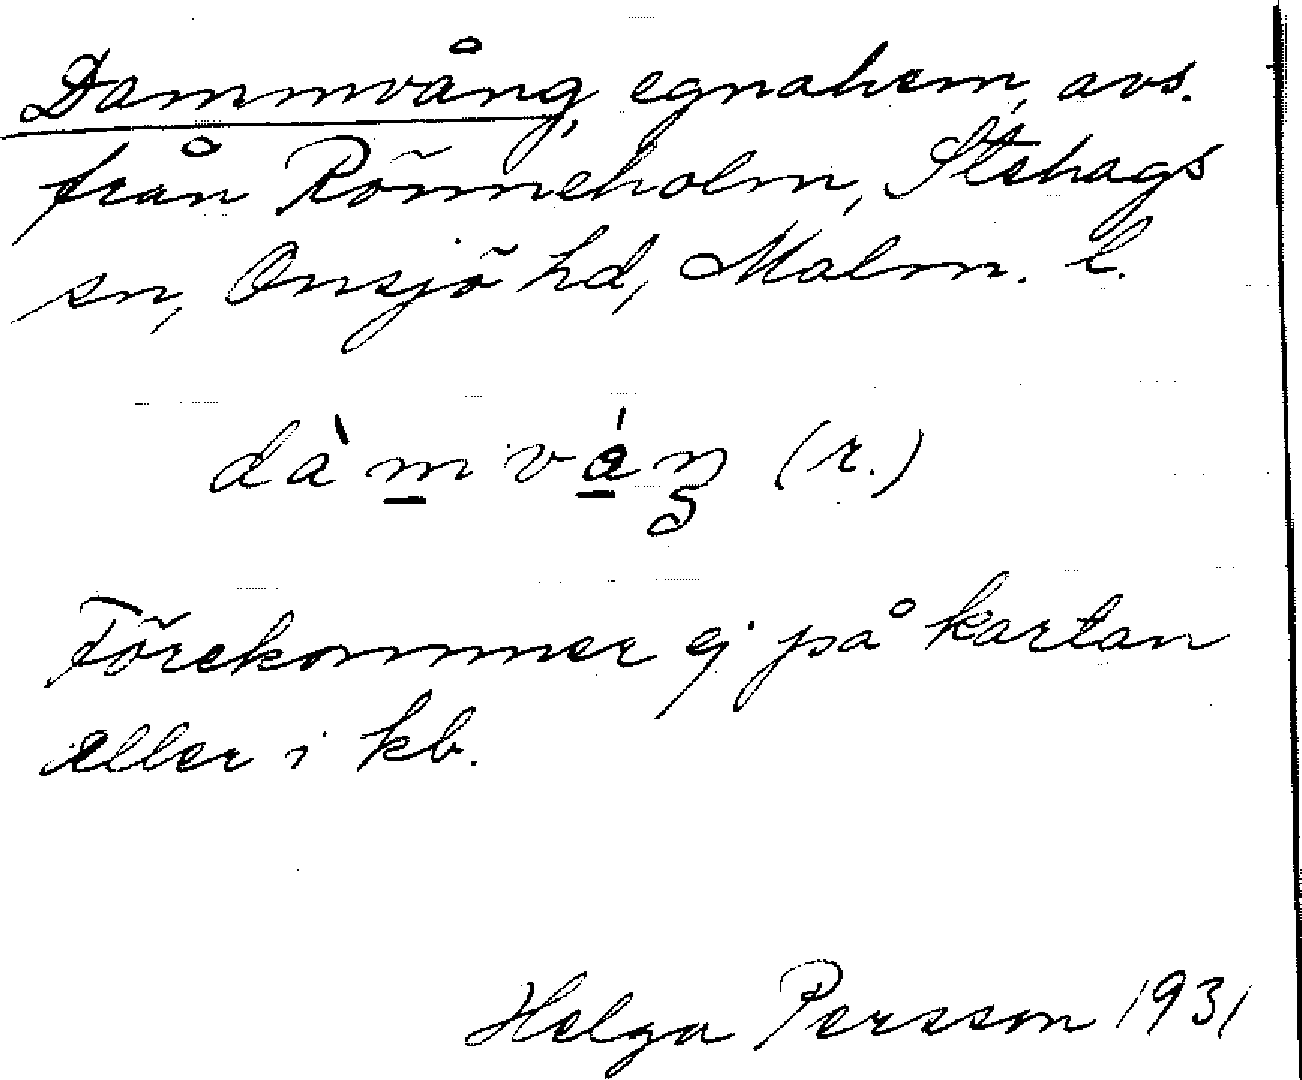 Dammvång, egnahem, avs.
från Rönneholm, Stehags
sn, Onsjö hd, Malm. l.
dàmváŋ (r.)
Förekommer ej på kartan
eller i kb.
Helga Persson 1931